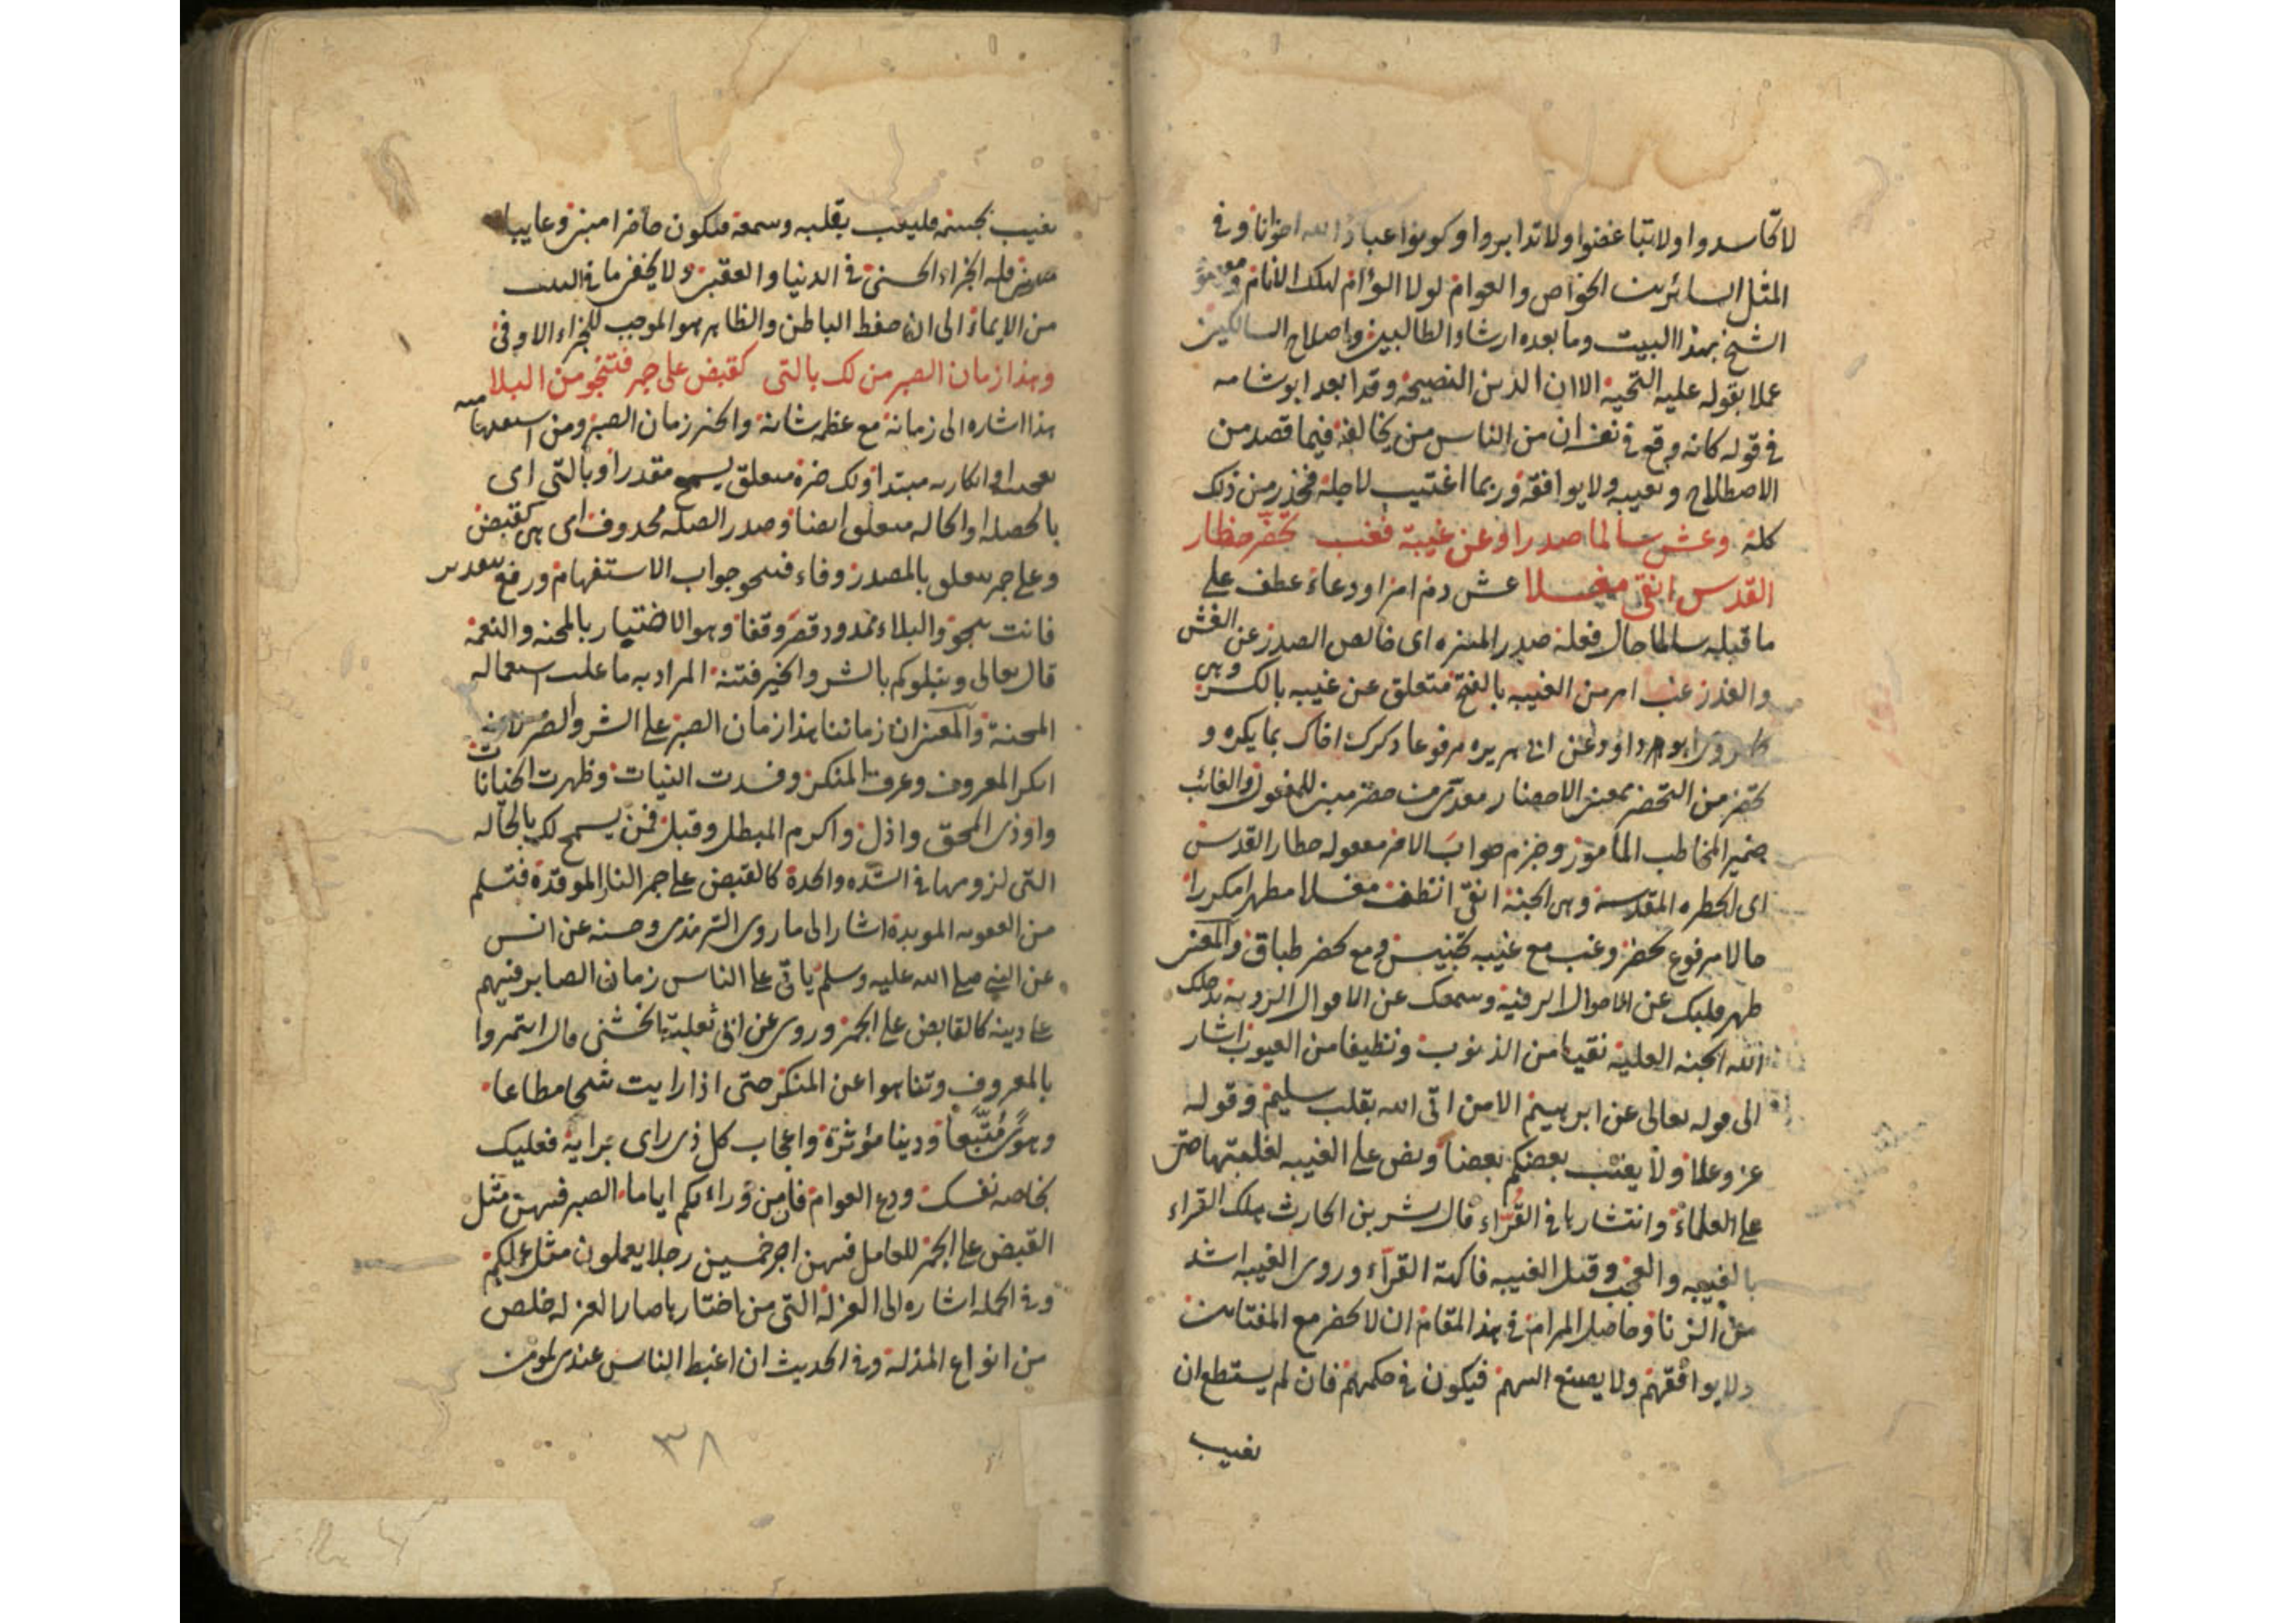 لا تحاسدوا ولا تباغضوا ولا تدابروا وكونوا عباد الله اخوانا وفي
المثل السائر بين الخواص والعوام لولا الوئام لهلك الانام
الشيخ بهذا البيت وما بعده ارشاد الطالبين واصلاح السالكين
عملا بقوله عليه التحية الا ان الدين النصيحة وقد ابعد ابو شامه
في قوله كانه وقع في نفسه ان من الناس من يخالفه فيما قصد من
الاصطلاح ويعيبه ولا يوافقه وربما اغتيب لاجله فحذر من ذلك
كله وعش سالما صدرا وعن غيبة فغب تحضر حظار
القدس انقى مغسلا عش دم امرا ودعاء عطف على
ما قبله سالما حال فعله صدر المنزه اى خالص الصدر عن الغش
والغدر غب امر من الغيبه بالفتح متعلق عن غيبه بالكسر وهي
كما روى ابو داود عن ابى هريره مرفوعا ذكرك اخاك بما يكره و
تحضر من التحضر بمعنى الاحضار حضر مبنى للمفعول والغائب
ضمير المخاطب المأمور وجزم جواب الامر مفعوله حظار القدس
اى الحظره المقدسة وهى الجنة انقى انظف مغسلا مطهرا مكررا
حال مرفوع تحضر وغب مع غيبه تجنيس ومع تحضر طباق والمعنى
طهر قلبك عن الاحوال الردية وسمعك عن الاقوال الرديه يدخلك
الله الجنه العليه نقيا من الذنوب ونظيفا من العيوب اشار
الى قوله تعالى عن ابرهيم الا من اتى الله بقلب سليم وقوله
عز وعلا ولا يغتب بعضكم بعضا ونص على الغيبه لغلبتها حتى
على العلماء وانتشارها في القراء قال بشر بن الحارث هلك القراء
بالغيبه والعجب وقيل الغيبه فاكهة القراء وروى الغيبه اشد
من الزنا وحاصل المرام في هذا المقام ان لا تحضر مع المغتابين
ولا يوافقهم ولا يصنع اليهم فيكون في حكمهم فان لم يستطع ان
تغيب
تغيب بجسمه فليغب بقلبه وسمعه فيكون حاضرا مبنى وغايبا
فله الجزاء الحسنى في الدنيا والعقبى ولا يخفى ما في البيت
من الايماء الى ان حفظ الباطن والظاهر هو الموجب للجزاء الاوفى
وهذا زمان الصبر من لك بالتى كقبض على جمر فتنجو من البلا
هذا اشاره الى زمانه مع عظم شانه والخبر زمان الصبر ومن استفهامية
مبتدا ولك خبره متعلق يسمح مقدرا وبالتى اى
بالخصله او الحاله متعلق ايضا وصدر الصله محذوف اى هي كقبض
وعلى جمر متعلق بالمصدر وفاء فتنجو جواب الاستفهام ورفع بتقدير
فانت تنجو والبلاء ممدود قصر وقفا وهو الاختبار بالمحنه والنعمة
قال تعالى ونبلوكم بالشر والخير فتنة المراد به ما غلب استعماله
المحنة والمعنى ان زماننا هذا زمان الصبر على الشر والضر لانه
انكر المعروف وعرف المنكر وفسدت النيات وظهرت الخيانات
واوذى المحق واذل واكرم المبطل وقبل فمن يسمح لك بالحاله
التى لزومها في الشده والحدة كالقبض على جمر النار الموقدة فتسلم
من العقوبه الموبدة اشار الى ما روى الترمذى وحسنه عن انس
عن النبى صلى الله عليه وسلم ياتى على الناس زمان الصابر فيهم
على دينه كالقابض على الجمر وروى عن ابى ثعلبة الخشنى قال ائتمروا
بالمعروف وتناهوا عن المنكر حتى اذا رايت شحا مطاعا
وهوى متبعا ودنيا مؤثرة واعجاب كل ذى راى برايه فعليك
بخاصه نفسك ودع العوام فان من وراءكم اياما الصبر فيهن مثل
القبض على الجمر للعامل فيهن اجر خمسين رجلا يعملون مثل عملكم
وفي الجمله اشاره الى العزلة التى من اختارها صار العزله خلص
من انواع المذلة وفي الحديث ان اغبط الناس عندى لمومن
٣٨